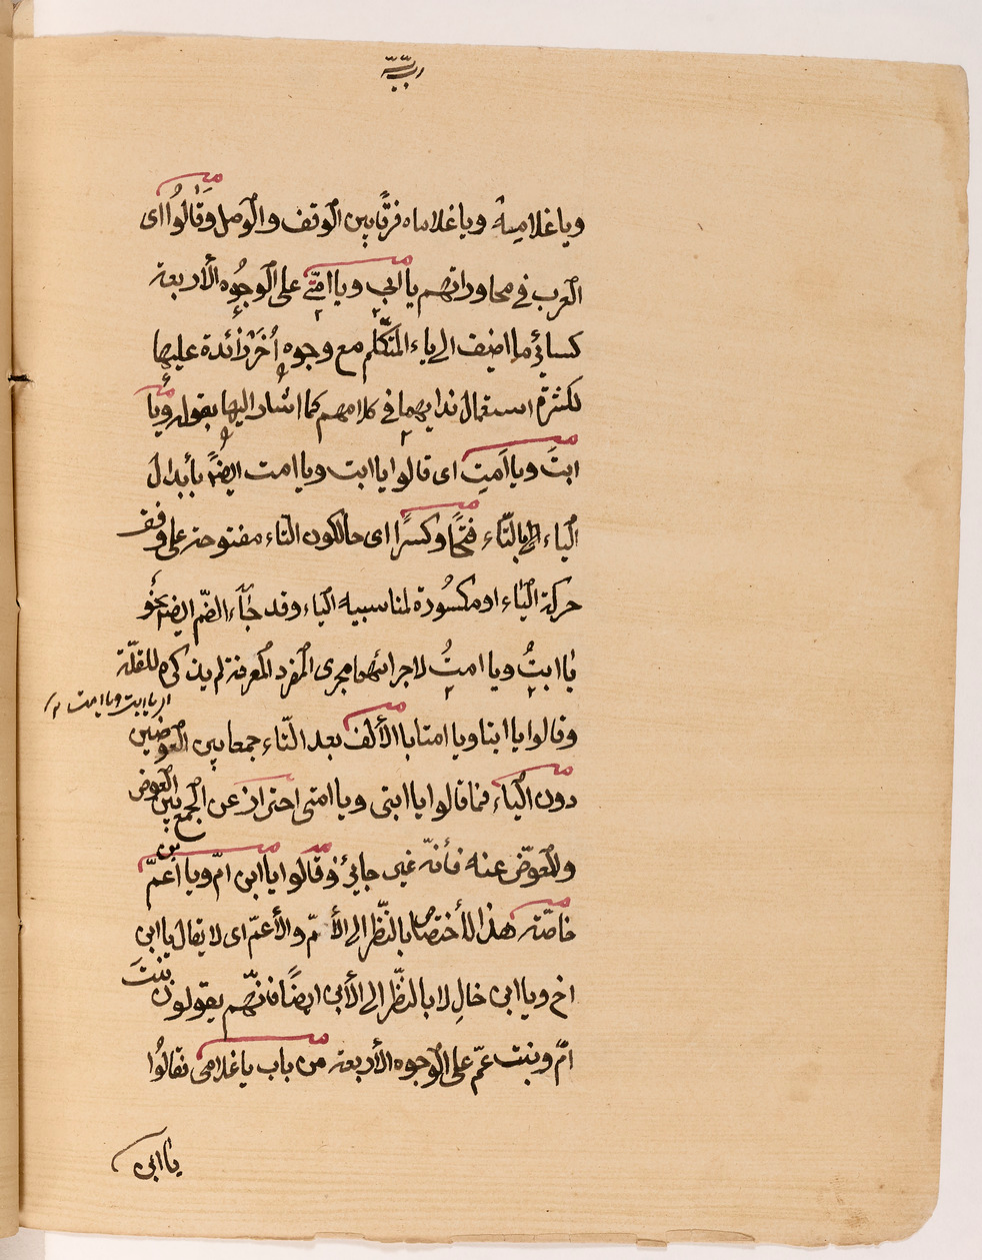 ويا غلاميه ويا غلاماه فرقا بين الوقف والوصل وقالوا اى
العرب في محاوراتهم يا ابي ويا امّي على الوجوه الأربعة
كسائر ما اضيف الى ياء المتكلّم مع وجوه اُخَر زائدة عليها
لكثرة استعمال ندايهما في كلامهم كما اشار اليها بقوله ويا
ابتَ ويا اَمتِ اى قالوا يا ابت ويا امت ايضًا بأبدال
الياء بالتّاء فتحًا وكسرًا اى حالكون التّاء مفتوحة على وفق
حركة الياء او مكسُورة لمناسبيه الياء وقد جاء الضّم ايضا نحو
يا ابتُ ويا امتُ لاجرائهما مجرى المفرد المعرفة لم يذكره للقلّة
اى يا ابت ويا امت
وقالوا يا ابتا ويا امتا با الألف بعد التّاء جمعا بين العوضين
دون الياء فما قالوا يا ابتى ويا امتى احتراز عن الجمع بين العوض
والمعوّض عنه فأنّه غير جائز وقالوا يا ابن امّ ويا ابن عمّ
خاصّة هذا الأختصاص بالنّظر الى الأمّ والأعمّ اى لا يقال يا ابن
اخ ويا ابن خالِ لا بالنظّر الى الأبن ايضًا فانّهم يقولون بنتَ
امّ وبنت عمّ على الوجوه الأربعة من باب يا غلامى فقالوُا
يا ابن